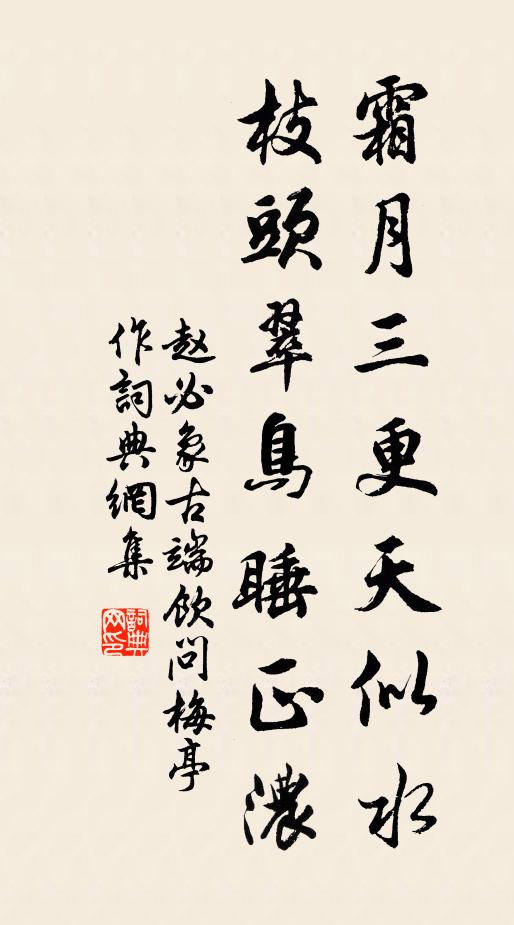 霜月三更天似水
枝頭翠鳥睡正濃
赵必象古端飲問梅亭
作詞典網集
詞典
网印